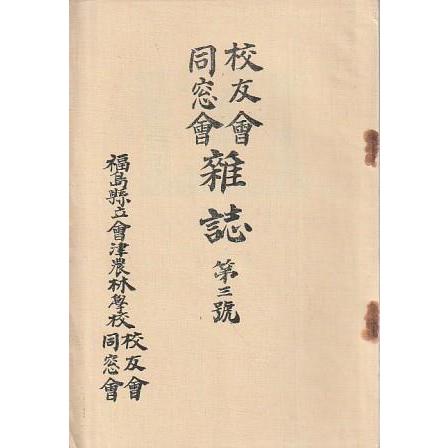 校友會
同窓會
雜誌 第三號
福島縣立會津農林學校
校友會
同窓會